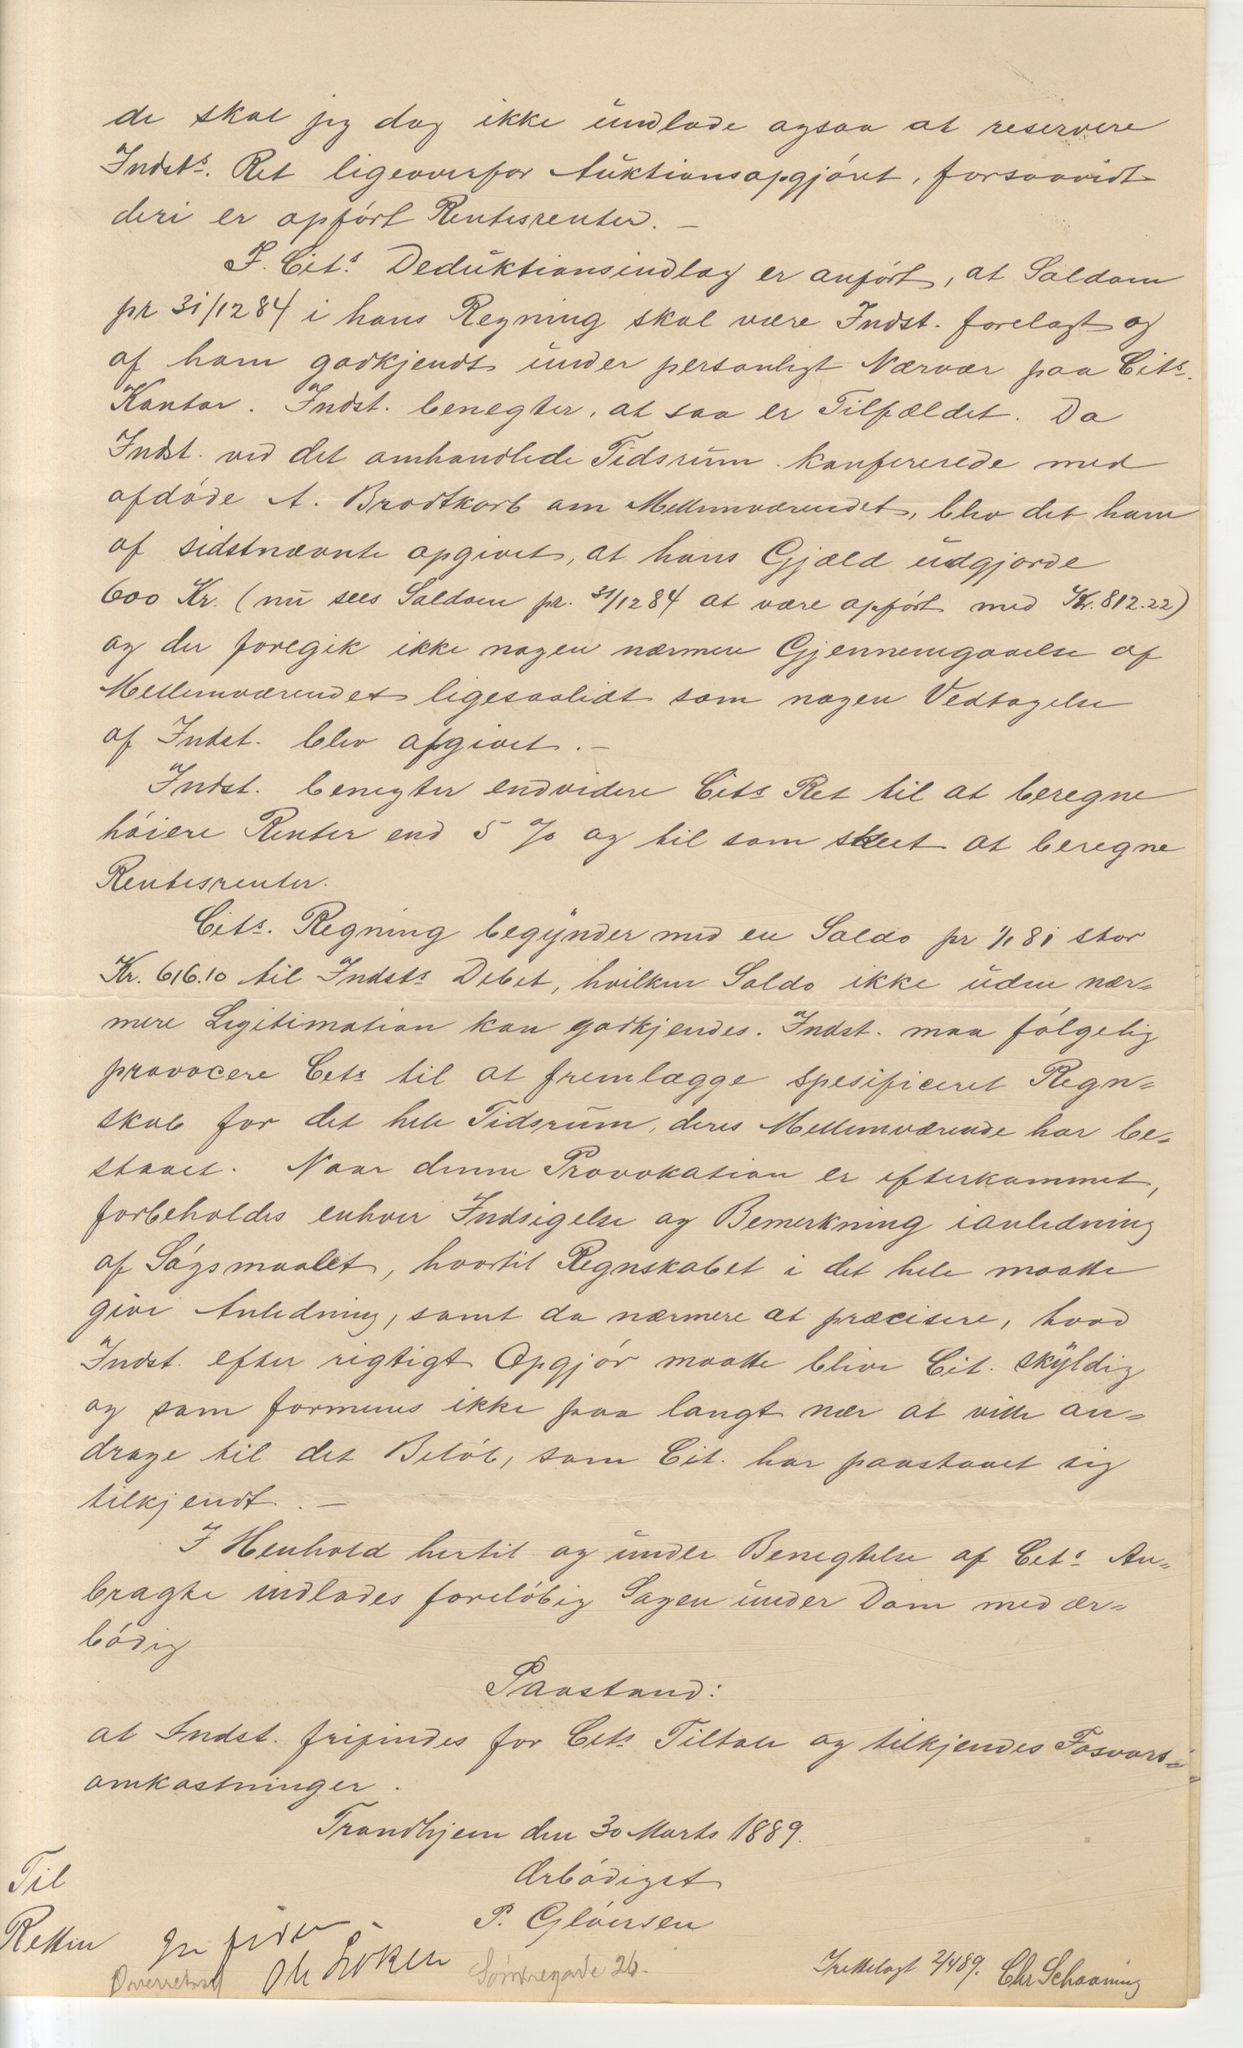 de skal jeg dog ikke undlade ogsaa at reservere
Indsts. Ret ligeoverfor Auktionsopgjöret, forsaavidt
deri er opfört Rentesrenter. –
I Cits. Deduktionsindlæg er anfört, at Saldoen
pr 31/12 84 i hans Regning skal være Indst. forelagt og
af ham godkjendt under personligt Nærvær paa Cits.
Kontor. Indst. benegter, at saa er Tilfældet. Da
Indst. ved det omhandlede Tidsrum konfererede med
afdöde A. Brodtkorb om Mellemværendet, blev det ham
af sidstnævnte opgivet, at hans Gjæld udgjorde
600 Kr. (nu sees Saldoen pr. 31/12 84 at være opfört med Kr. 812.22)
og der foregik ikke nogen nærmere Gjennemgaaelse af
Mellemværendet ligesaalidt som nogen Vedtagelse
af Indst. blev afgivet. –
Indst. benegter endvidere Cits Ret til at beregne
höiere Renter end 5 % og til som skeet at beregne
Rentesrenter.
Cits. Regning begynder med en Saldo pr 1/1 81 stor
Kr. 616.10 til Indsts Debet, hvilken Saldo ikke uden nær-
mere Legitimation kan godkjendes. Indst. maa fölgelig
provocere Cits til at fremlægge spesificeret Regn-
skab for det hele Tidsrum, deres Mellemværende har be-
staaet. Naar denne Provokation er efterkommet,
forbeholdes enhver Indsigelse og Bemerkning ianledning
af Sögsmaalet, hvortil Regnskabet i det hele maatte
give Anledning, samt da nærmere at præcisere, hvad
Indst. efter rigtigt Opgjör maatte blive Cit. skyldig
og som formenes ikke paa langt nær at ville an-
drage til det Belöb, som Cit. har paastaaet sig
tilkjendt. –
I Henhold hertil og under Benegtelse af Cits An-
bragte indlades foreløbig Sagen under Dom med ær-
bödig
Paastand:
at Indst. frifindes for Cits Tiltale og tilkjendes Fosvars-
omkostninger.
Trondhjem den 30 Marts 1889.
Ærbödigst
P. Glöersen
Til
Retten
Ole Löken
Søndregade 26.
Irettelagt 2/4 89. Chr Schaaning